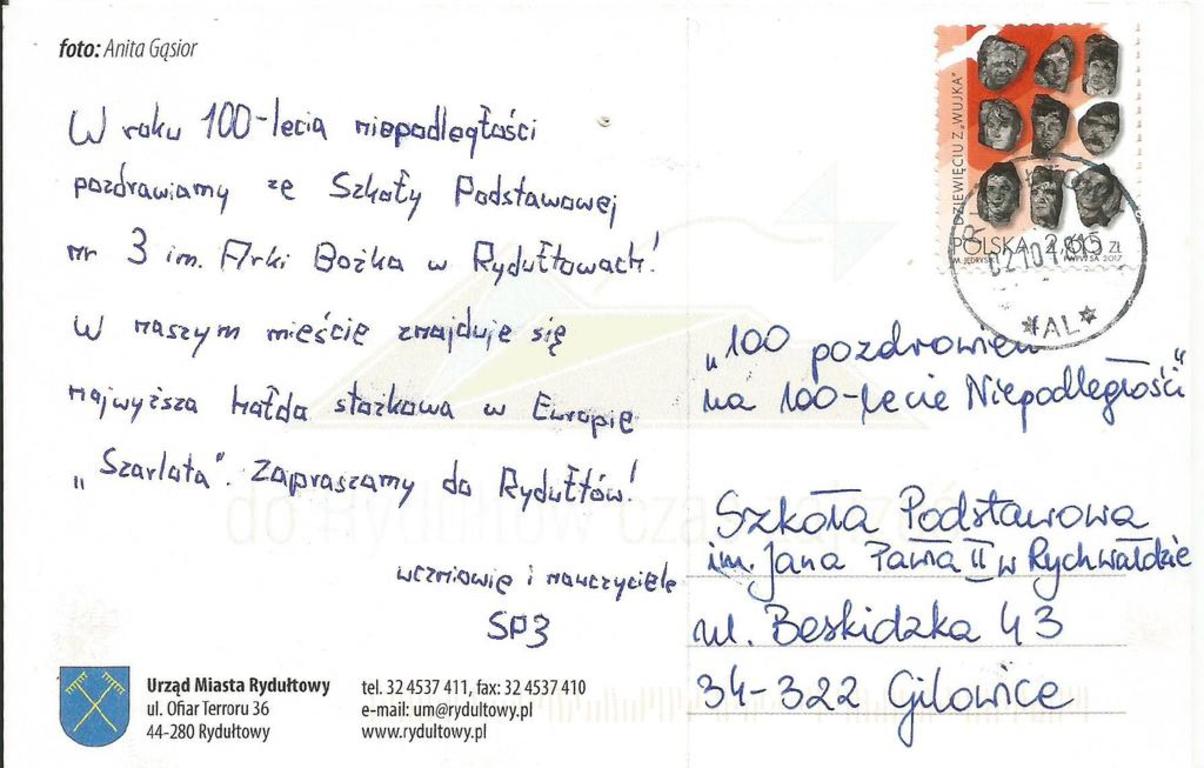 foto: Anita Gąsior
W roku 100-lecia niepodległości
pozdrawiamy ze Szkoły Podstawowej
nr 3 im. Arki Bożka w Rydułtowach!
W naszym mieście znajduje się
najwyższa hałda stożkowa w Europie
„Szarlota". Zapraszamy do Rydułtów!
uczniowie i nauczyciele
SP3
Urząd Miasta Rydułtowy
ul. Ofiar Terroru 36
44-280 Rydułtowy
tel. 32 4537 411, fax: 32 4537 410
e-mail: um@rydultowy.pl
www.rydultowy.pl
DZIEWIĘCIU Z „WUJKA"
POLSKA 2,60 ZŁ
M. JĘDRYSIK PWPW SA 2017
*AL*
„100 pozdrowień
na 100-lecie Niepodległości"
Szkoła Podstawowa
im. Jana Pawła II w Rychwałdzie
ul. Beskidzka 43
34-322 Gilowice
do Rydułtów czas zajrzeć